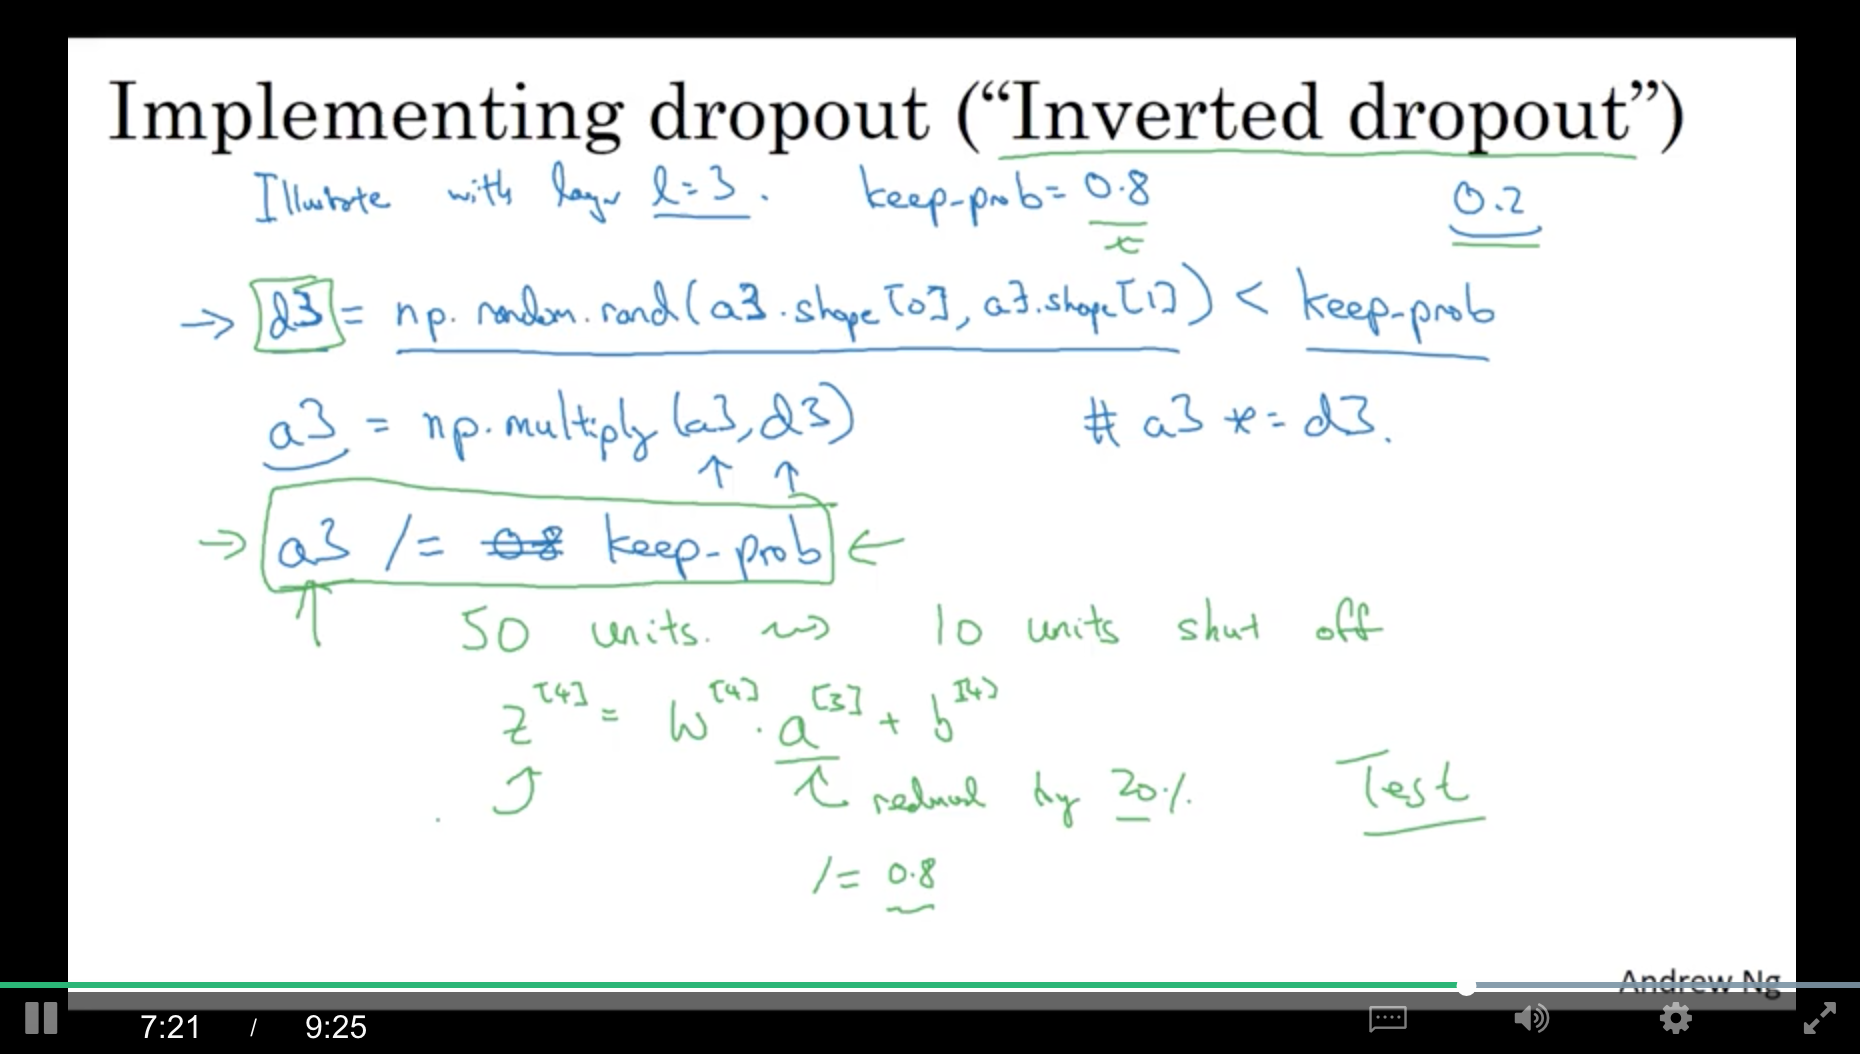 Implementing dropout (“Inverted dropout”)
Illustrate with layer l=3. keep-prob=0.8 0.2
→ d3 = np.random.rand(a3.shape[0], a3.shape[1]) < keep-prob
a3 = np.multiply(a3, d3) # a3 *= d3.
→ a3 /= 0.8 keep-prob ←
50 units. ⟿ 10 units shut off
z^[4] = W^[4] · a^[3] + b^[4]
reduced by 20% Test
/= 0.8
Andrew Ng
7:21 / 9:25